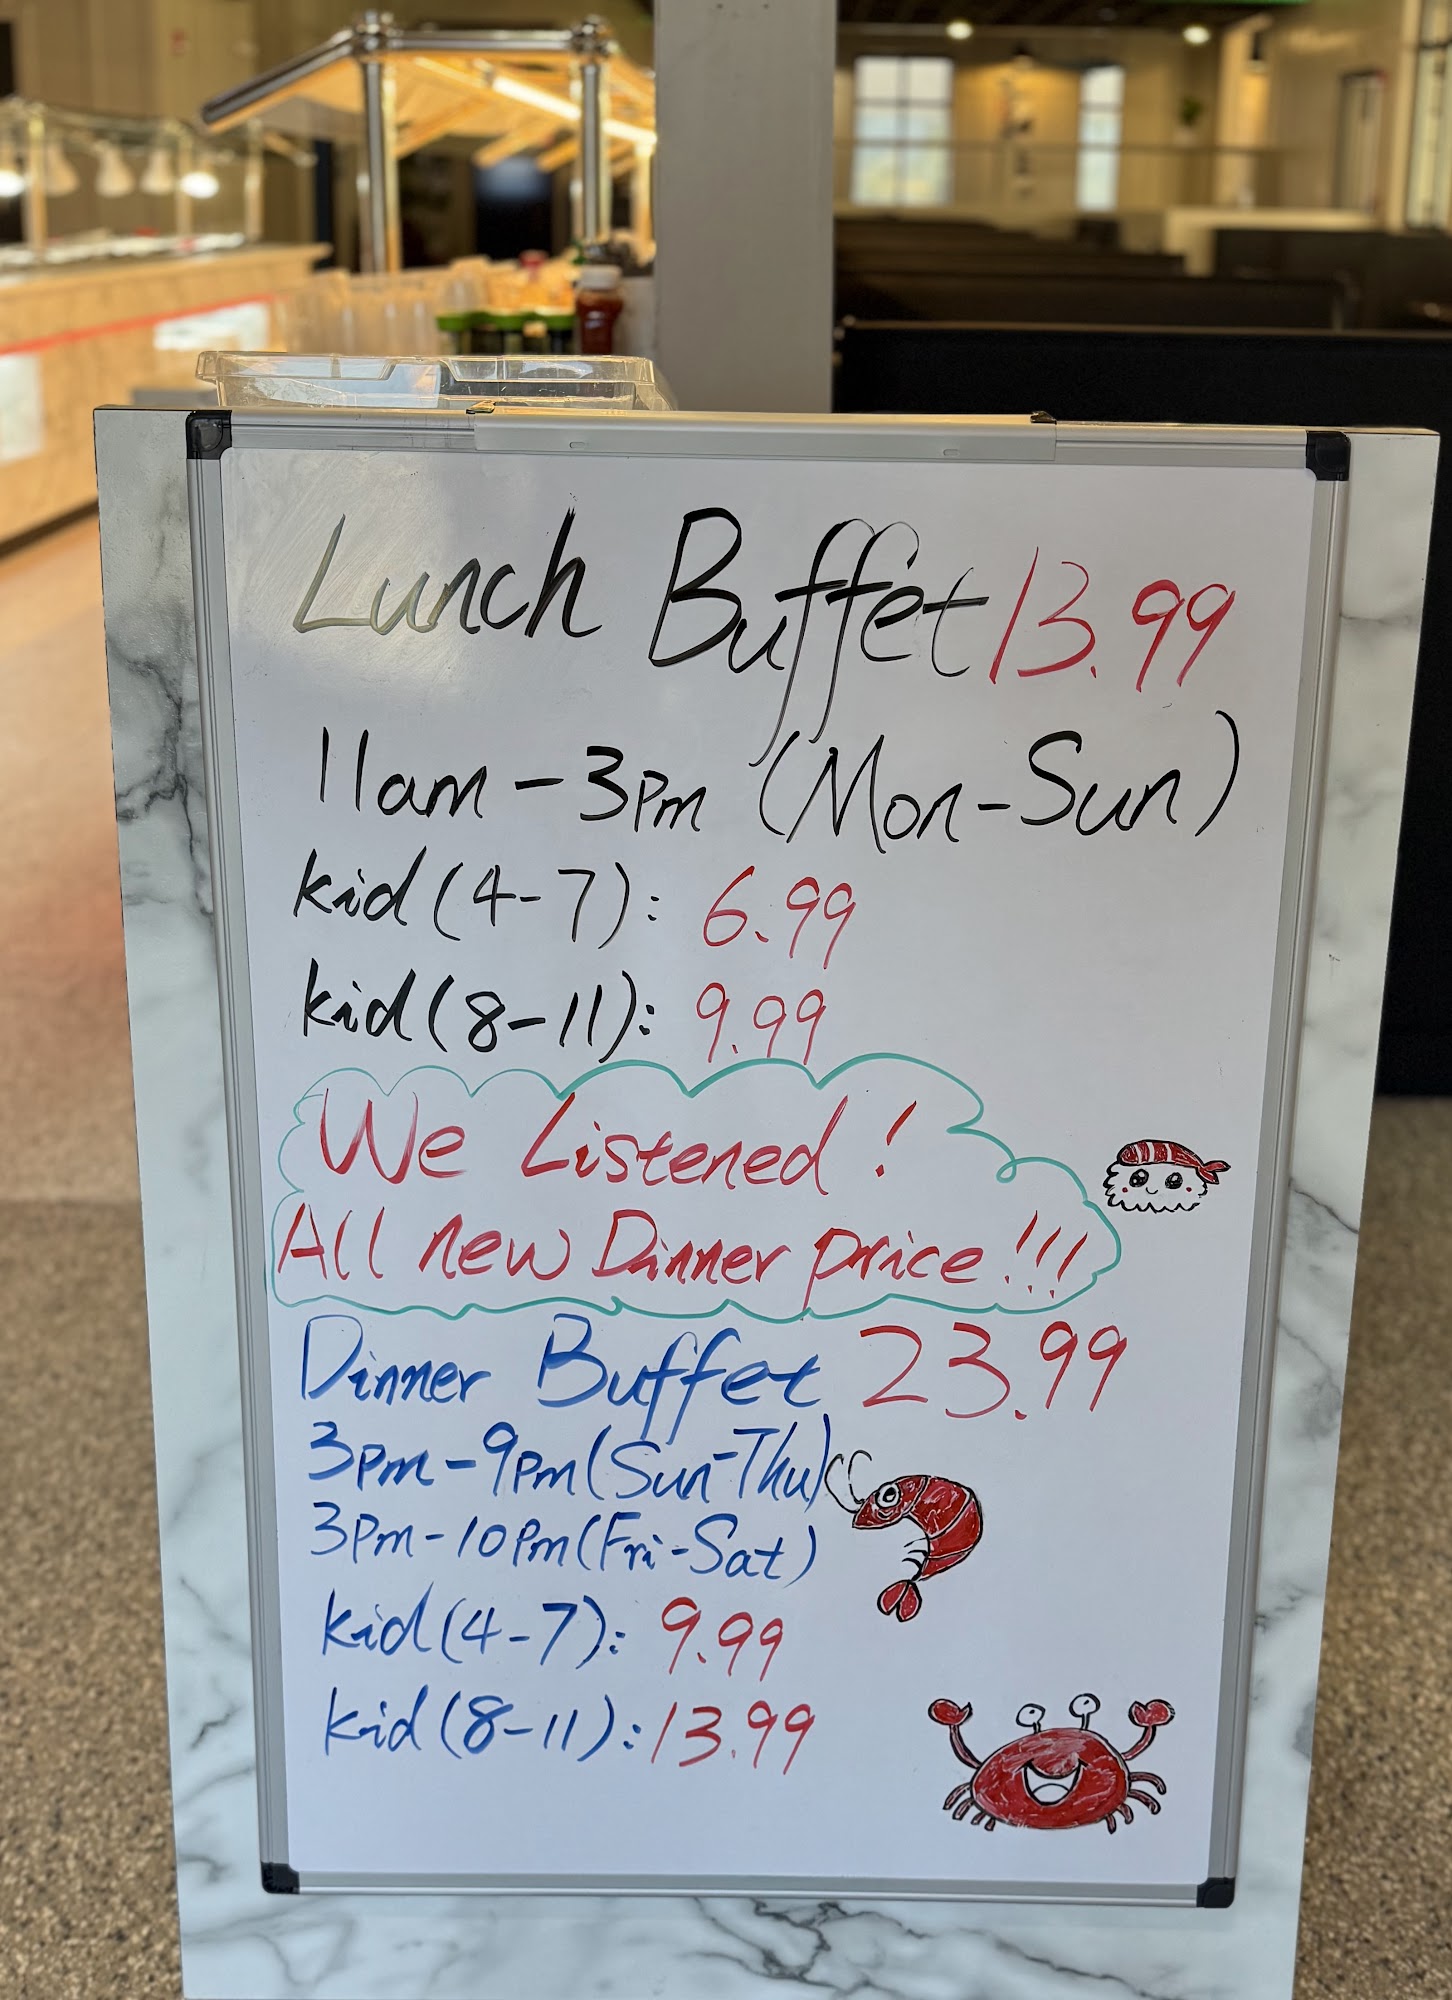 Lunch Buffet 13.99
11am-3pm (Mon-Sun)
kid(4-7): 6.99
kid(8-11): 9.99
We Listened!
All new Dinner price!!!
Dinner Buffet 23.99
3pm-9pm(Sun-Thu)
3pm-10pm(Fri-Sat)
kid(4-7): 9.99
kid(8-11): 13.99